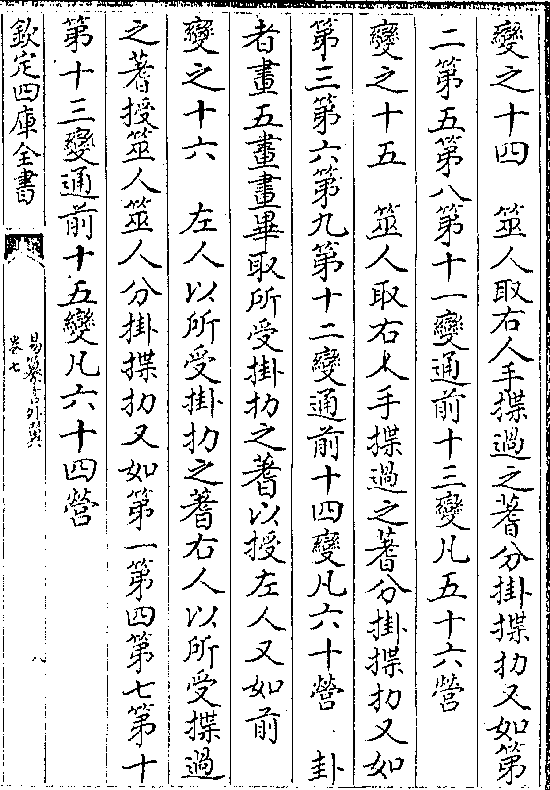 變之十四　筮人取右人手揲過之蓍分掛揲扐又如第
二第五第八第十一變通前十三變凡五十六營
變之十五　筮人取右人手揲過之蓍分掛揲扐又如
第三第六第九第十二變通前十四變凡六十營　卦
者畫五畫畫畢取所受掛扐之蓍以授左人又如前
變之十六　左人以所受掛扐之蓍右人以所受揲過
之蓍授筮人筮人分掛揲扐又如第一第四第七第十
第十三變通前十五變凡六十四營
欽定四庫全書
易纂言外翼
卷七
八